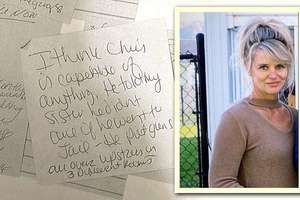 I think Chris
is capable of
anything. He told my
sister he didnt
care if he went to
Jail - He put guns
all over upstairs in
3 Different Rooms